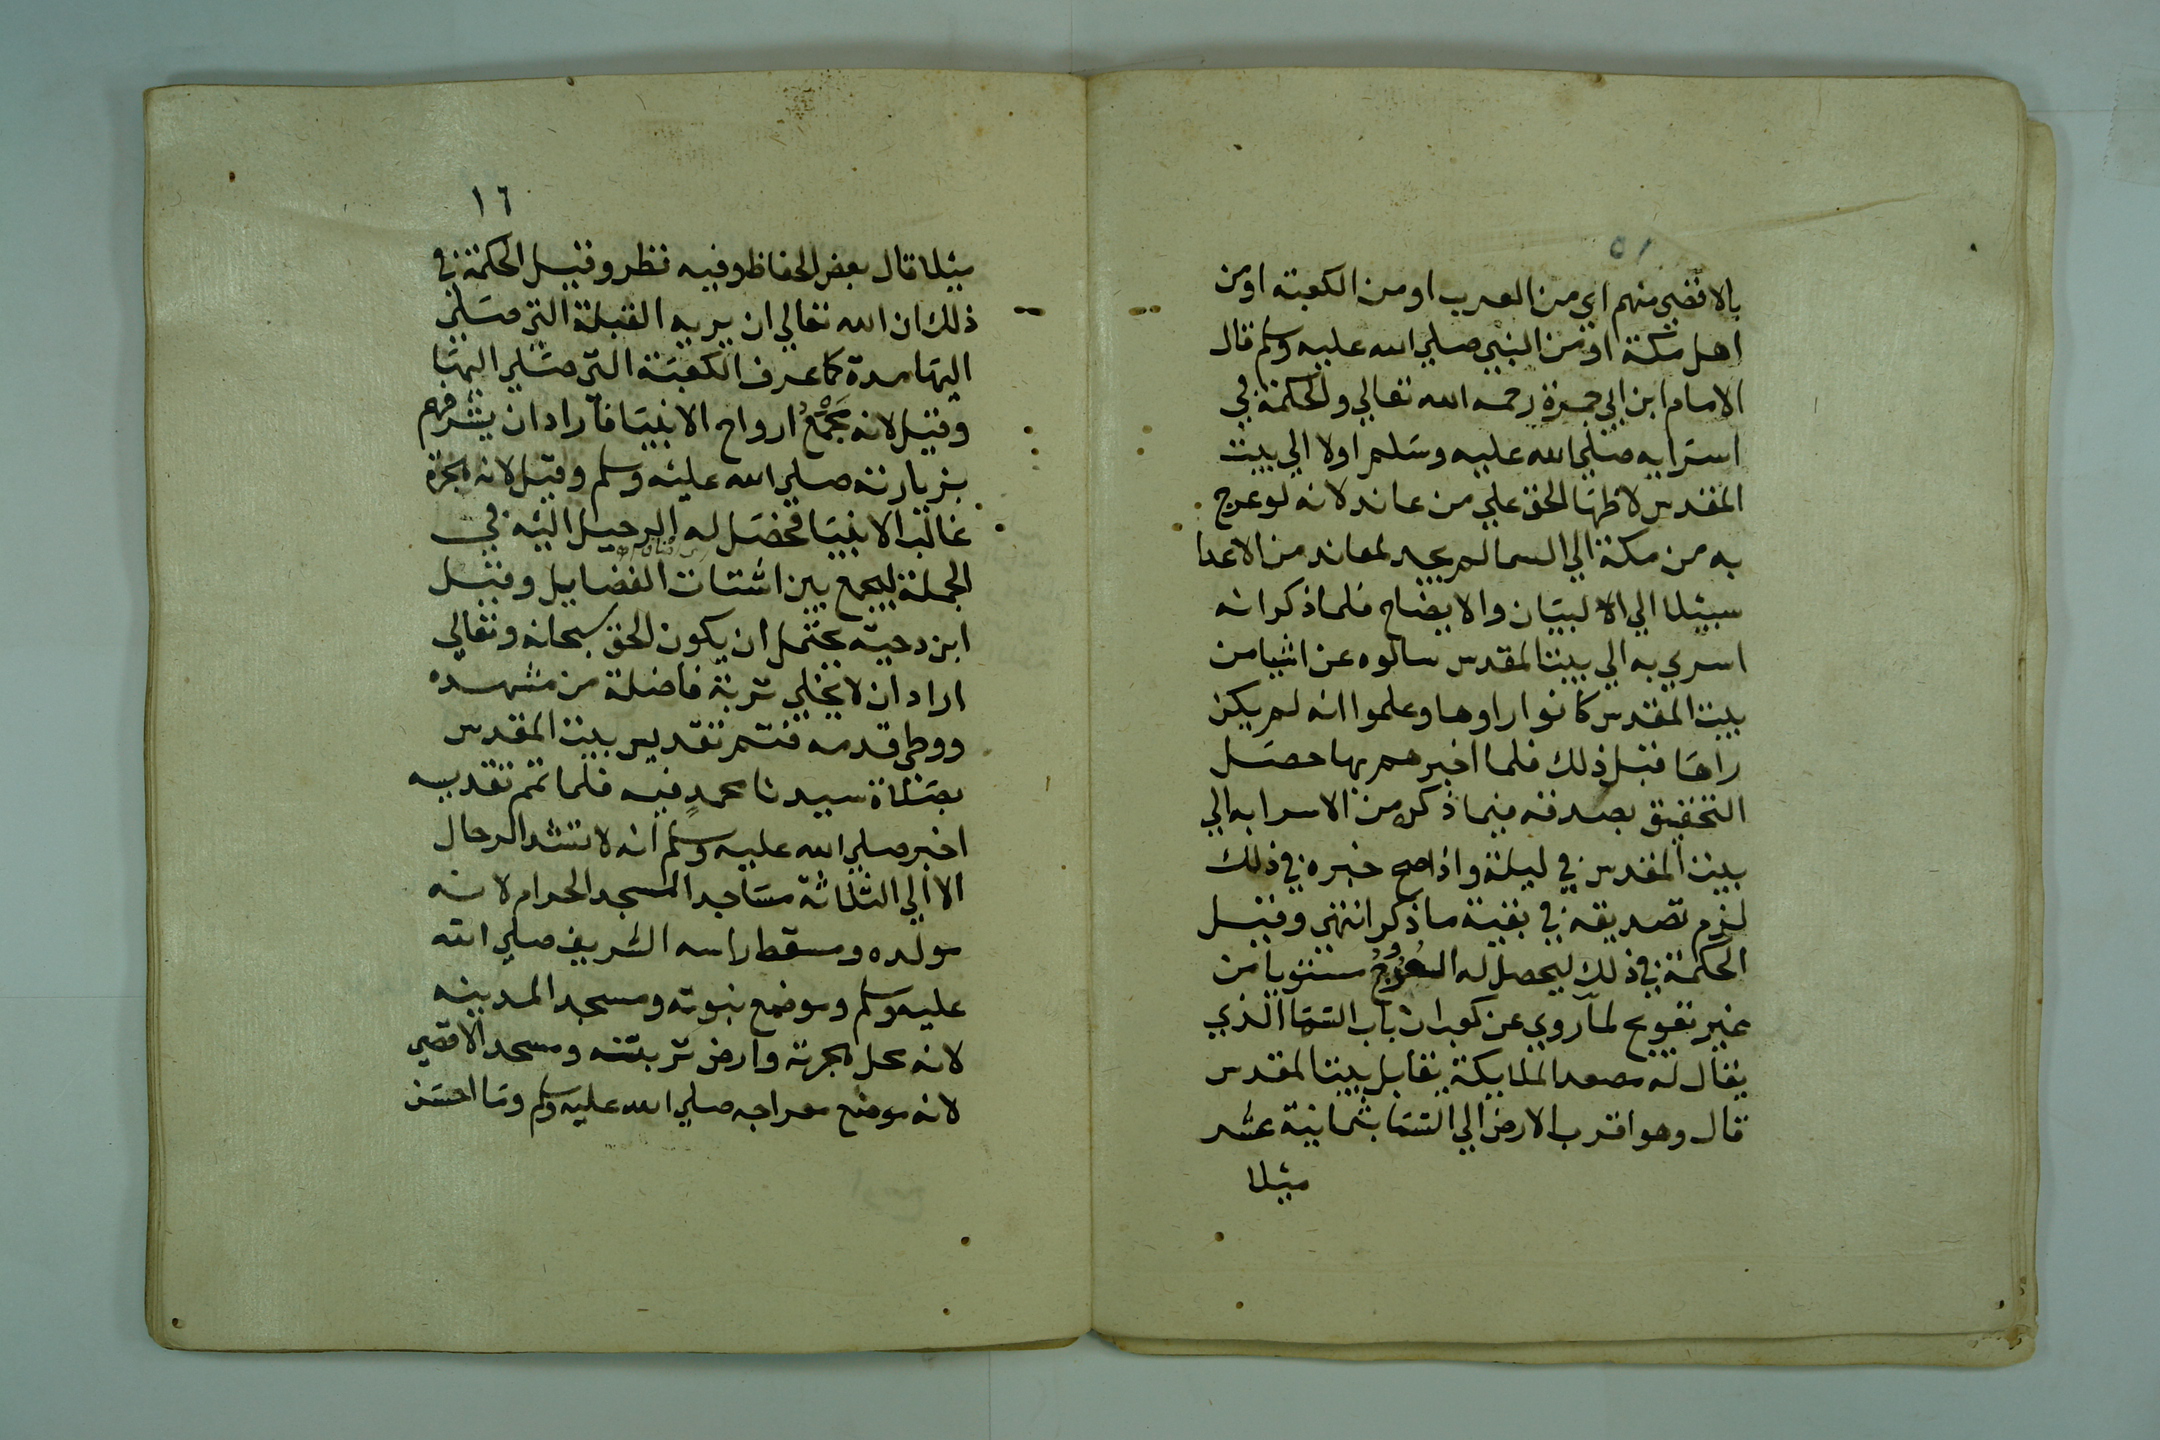 ١٥
بالاقصي منهم اي من العرب او من الكعبة او من
اهل مكة او من النبي صلي الله عليه وسلم قال
الامام ابن ابي جمرة رحمه الله تعالي والحكمة في
اسرايه صلي الله عليه وسلم اولا الي بيت
المقدس لاظهار الحق علي من عاند لانه لو عرج
به من مكة الي السما لم يجد لمعاند من الاعدا
سبيلا الي البيان والايضاح فلما ذكر انه
اسري به الي بيت المقدس سالوه عن اشيا من
بيت المقدس كانوا راوها وعلموا انه لم يكن
راها قبل ذلك فلما اخبرهم بها حصل
التحقيق بصدقه فيما ذكر من الاسرا به الي
بيت المقدس في ليلة واذا صح خبره في ذلك
لزم تصديقه في بقية ما ذكر انتهي وقيل
الحكمة في ذلك ليحصل له العروج مستويا من
غير تعويج لما روي عن كعب ان باب السما الذي
يقال له مصعد الملايكة يقابل بيت المقدس
قال وهو اقرب الارض الي السما بثمانية عشر
ميلا
١٦
ميلا قال بعض الحفاظ وفيه نظر وقيل الحكمة في
ذلك ان الله تعالي ان يريه القبلة التي صلي
اليها مدة كما عرف الكعبة التي صلي اليها
وقيل لانه مجمع ارواح الانبيا فاراد ان يشرفهم
بزيارته صلي الله عليه وسلم وقيل لانه هجرة
غالب الانبيا فحصل له الرحيل اليه في
الجملة ليجمع بين اشتات الفضايل وقيل
ابن دحية يحتمل ان يكون الحق سبحانه وتعالي
اراد ان لا يخلي تربة فاضلة من مشهده
ووطي قدمه فتمم تقديس بيت المقدس
بصلاة سيدنا محمد فيه فلما تمم تقديسه
اخبر صلي الله عليه وسلم انه لا تشد الرحال
الا الي الثلاثة مساجد المسجد الحرام لانه
مولده ومسقط راسه الشريف صلي الله
عليه وسلم وموضع نبوته ومسجد المدينه
لانه محل هجرته وارض تربته ومسجد الاقصي
لانه موضع معراجه صلي الله عليه وسلم وما احسن